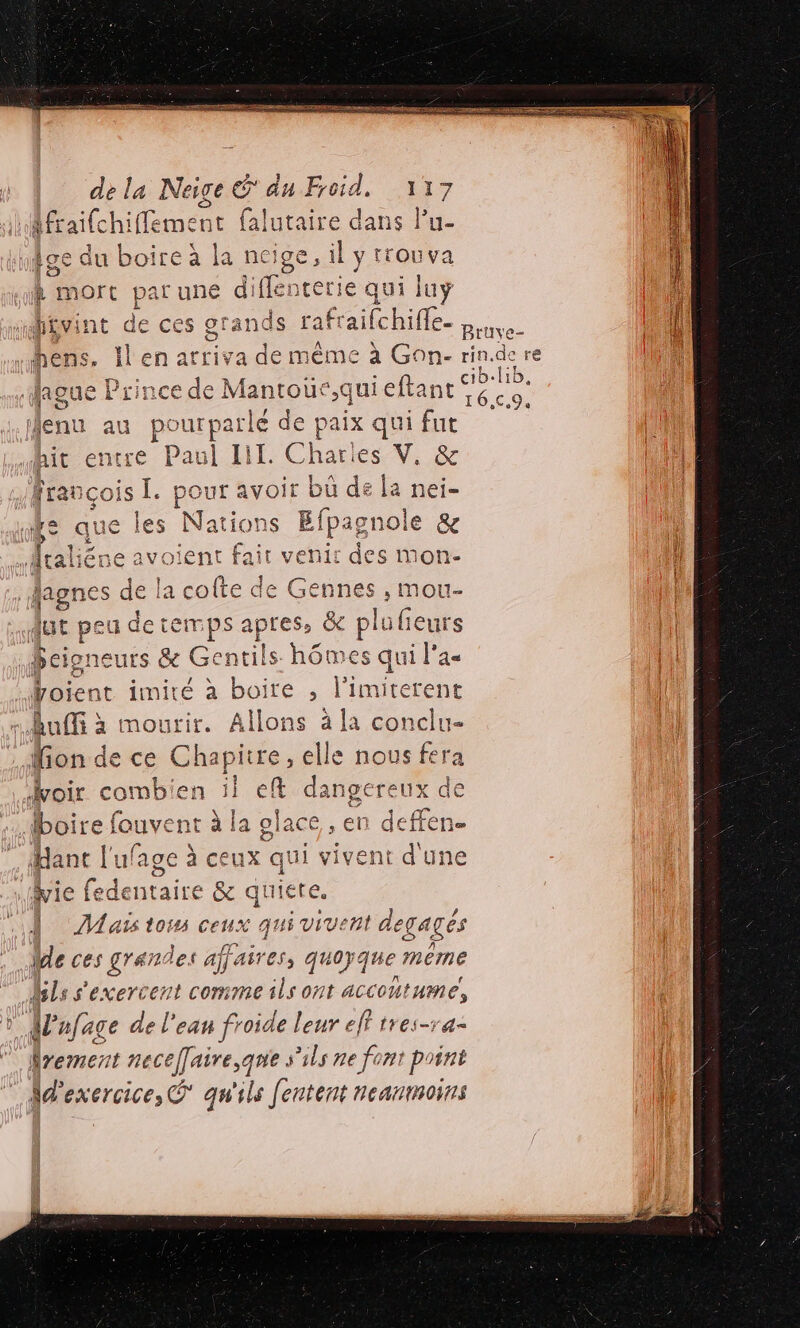 de la Neige & du Froid. 117
fraiſchiſſement ſalutaire dans l'u-
ge du boire à la neige, il y trouva
mort par une diſſenterie qui luy
vint de ces grands rafraiſchiſſe-
mens. Il en arriva de même à Gon-
gue Prince de Mantoüe, qui eſtant
venu au pourparlé de paix qui fut
fait entre Paul III. Charles V. &
François I. pour avoir bû de la nei-
ge que les Nations Eſpagnole &
Italiéne avoient fait venir des mon-
tagnes de la coſte de Gennes, mou-
rut peu de temps apres, & pluſieurs
Seigneurs & Gentils-hômes qui l'a-
voient imité à boire, l'imiterent
auſſi à mourir. Allons à la conclu-
ſion de ce Chapitre, elle nous fera
voir combien il eſt dangereux de
boire ſouvent à la glace, en deffen-
dant l'uſage à ceux qui vivent d'une
vie ſedentaire & quiete.
Mais tous ceux qui vivent degagés
de ces grandes affaires, quoyque même
ils s'exercent comme ils ont accoûtumé,
l'uſage de l'eau froide leur eſt tres-ra-
rement neceſſaire, que s'ils ne font point
d'exercice, & qu'ils ſentent neanmoins
Bruye-
rin. de re
cib. lib.
16. c. 9.